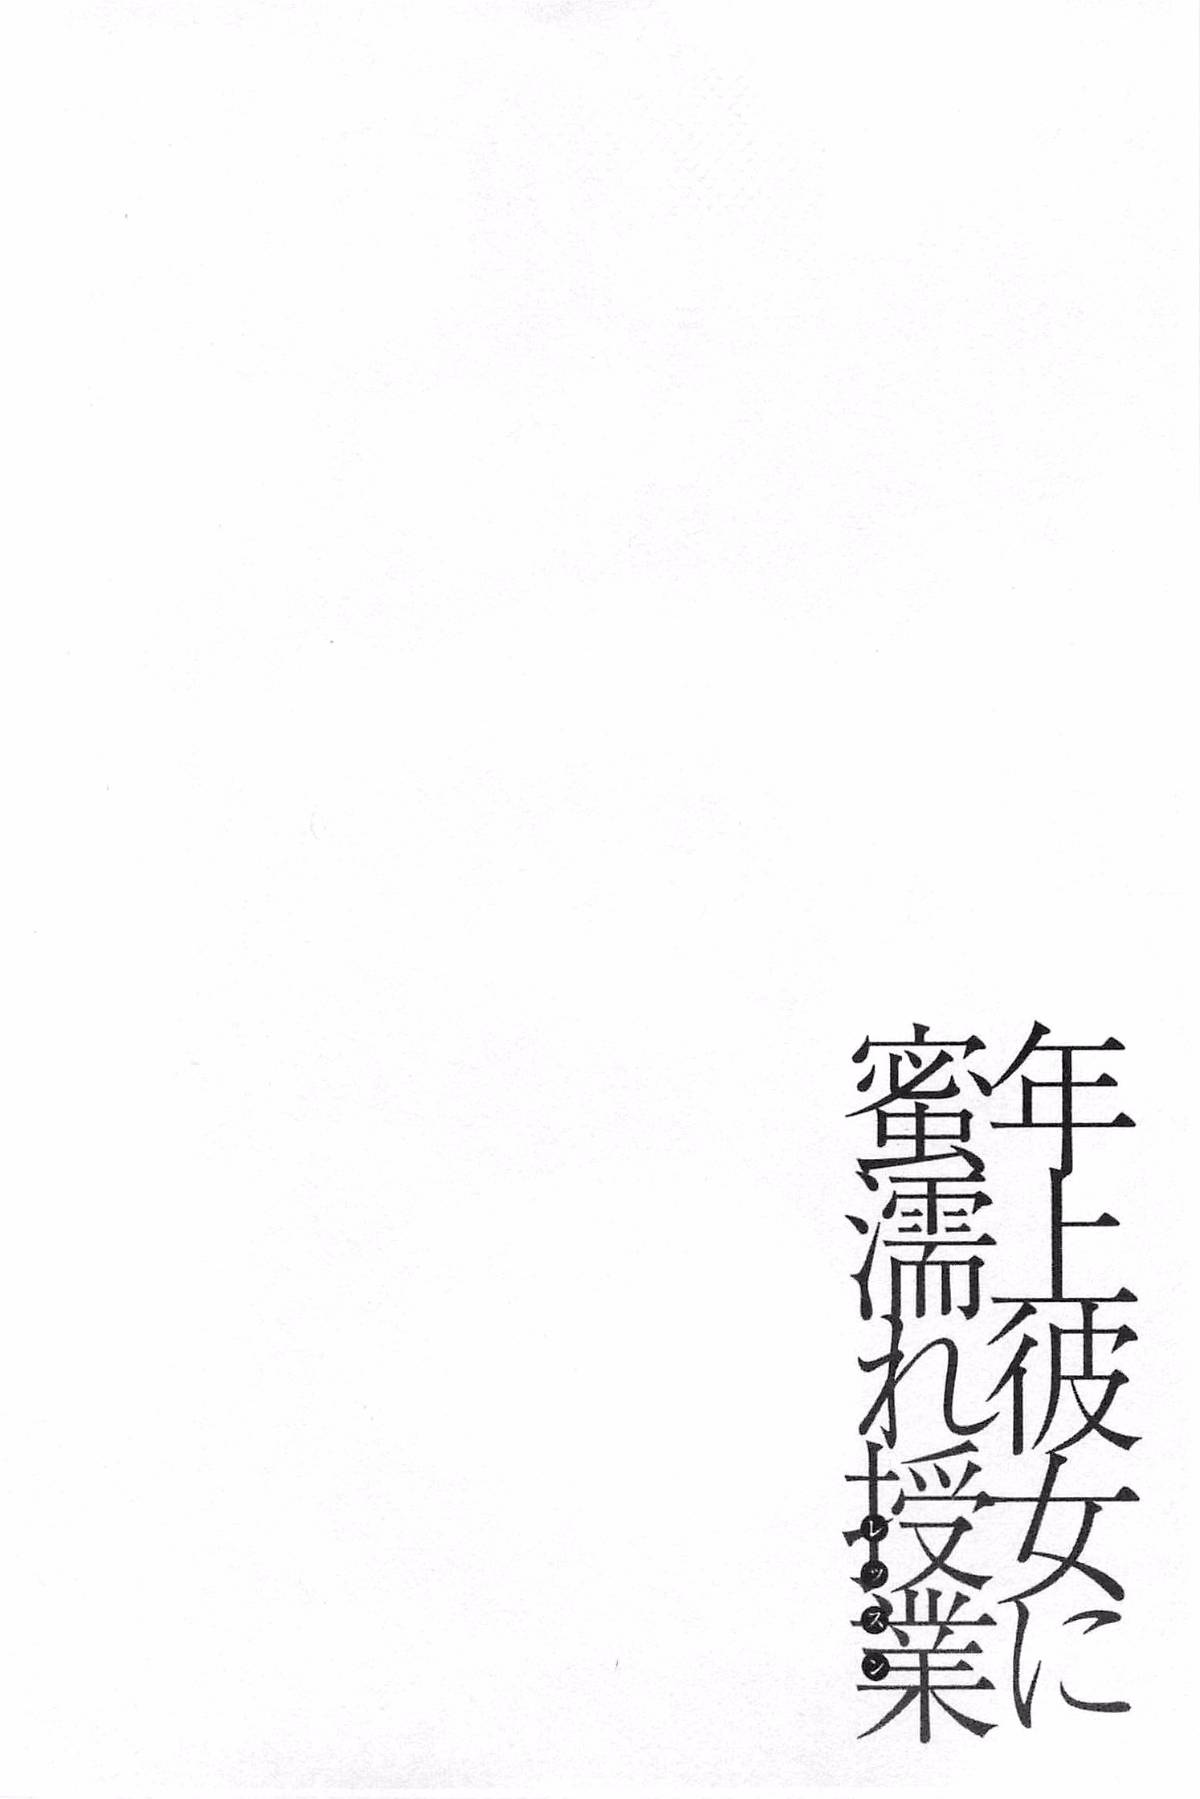 年上彼女に
蜜濡れ授業
レッスン